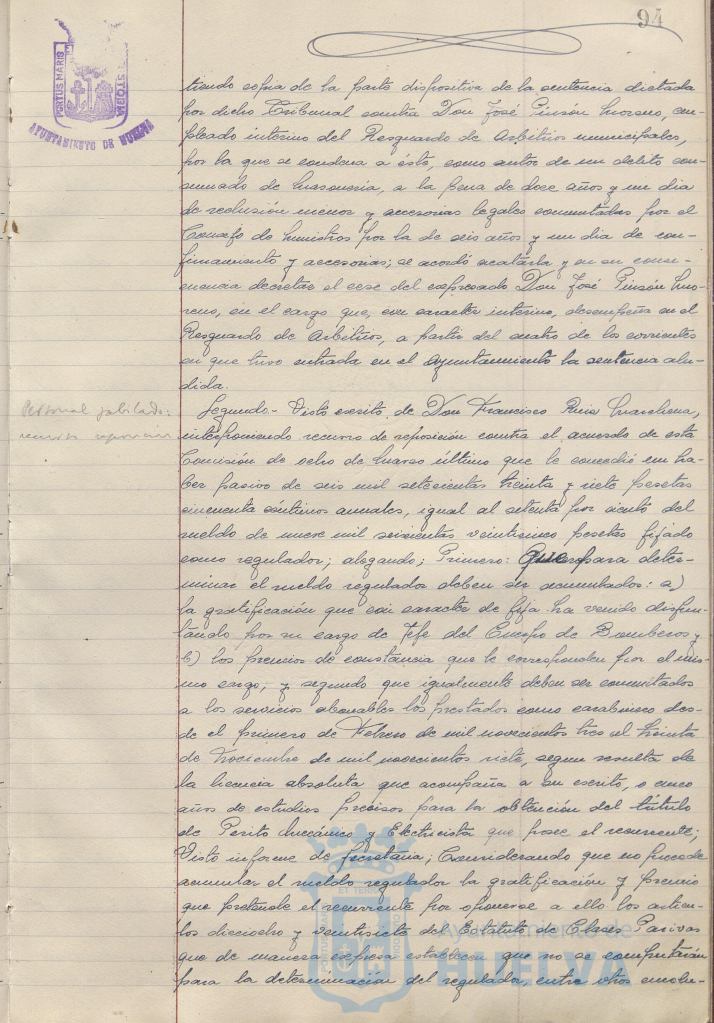 94
PORTUS MARIS
AYUNTAMIENTO DE HUELVA
tiendo copia de la parte dispositiva de la sentencia dictada
por dicho Tribunal contra Don José Pinzón Moreno, em-
pleado interino del Resguardo de Arbitrios municipales,
por la que se condena a éste, como autor de un delito con-
sumado de masonería, a la pena de doce años y un dia
de reclusión menor y accesorias legales conmutadas por el
Consejo de Ministros por la de seis años y un dia de con-
finamiento y accesorias; se acordó acatarla y en su conse-
cuencia decretar el cese del expresado Don José Pinzón Mo-
reno, en el cargo que, con caracter interino, desempeña en el
Resguardo de Arbitrios, a partir del cuatro de los corrientes
en que tuvo entrada en el Ayuntamiento la sentencia alu-
dida.
Personal jubilado:
recurso reposición
Segundo.- Visto escrito de Don Francisco Ruiz Marchena,
interponiendo recurso de reposición contra el acuerdo de esta
Comisión de ocho de Marzo último que le concedió un ha-
ber pasivo de seis mil setecientas treinta y siete pesetas
cincuenta céntimos anuales, igual al setenta por ciento del
sueldo de nueve mil seiscientas veinticinco pesetas fijado
como regulador; alegando; Primero: Que para deter-
minar el sueldo regulador deben ser acumulados: a)
la gratificación que con caracter de fija ha venido disfru-
tando por su cargo de Jefe del Cuerpo de Bomberos y
b) los premios de constancia que le corresponden por el mis-
mo cargo; y segundo que igualmente deben ser conmutados
a los servicios abonables los prestados como carabinero des-
de el primero de Febrero de mil novecientos tres al treinta
de Noviembre de mil novecientos siete, segun resulta de
la licencia absoluta que acompaña a su escrito, o cinco
años de estudios precisos para la obtención del título
de Perito Mecánico y Electricista que posee el recurrente;
Visto informe de Secretaria; Considerando que no procede
acumular el sueldo regulador la gratificación y premio
que pretende el recurrente por oponerse a ello los artícu-
los dieciocho y veintisiete del Estatuto de Clases Pasivas
que de manera expresa establecen que no se computarán
para la determinación del regulador, entre otros emolu-
Ayuntamiento de
HUELVA